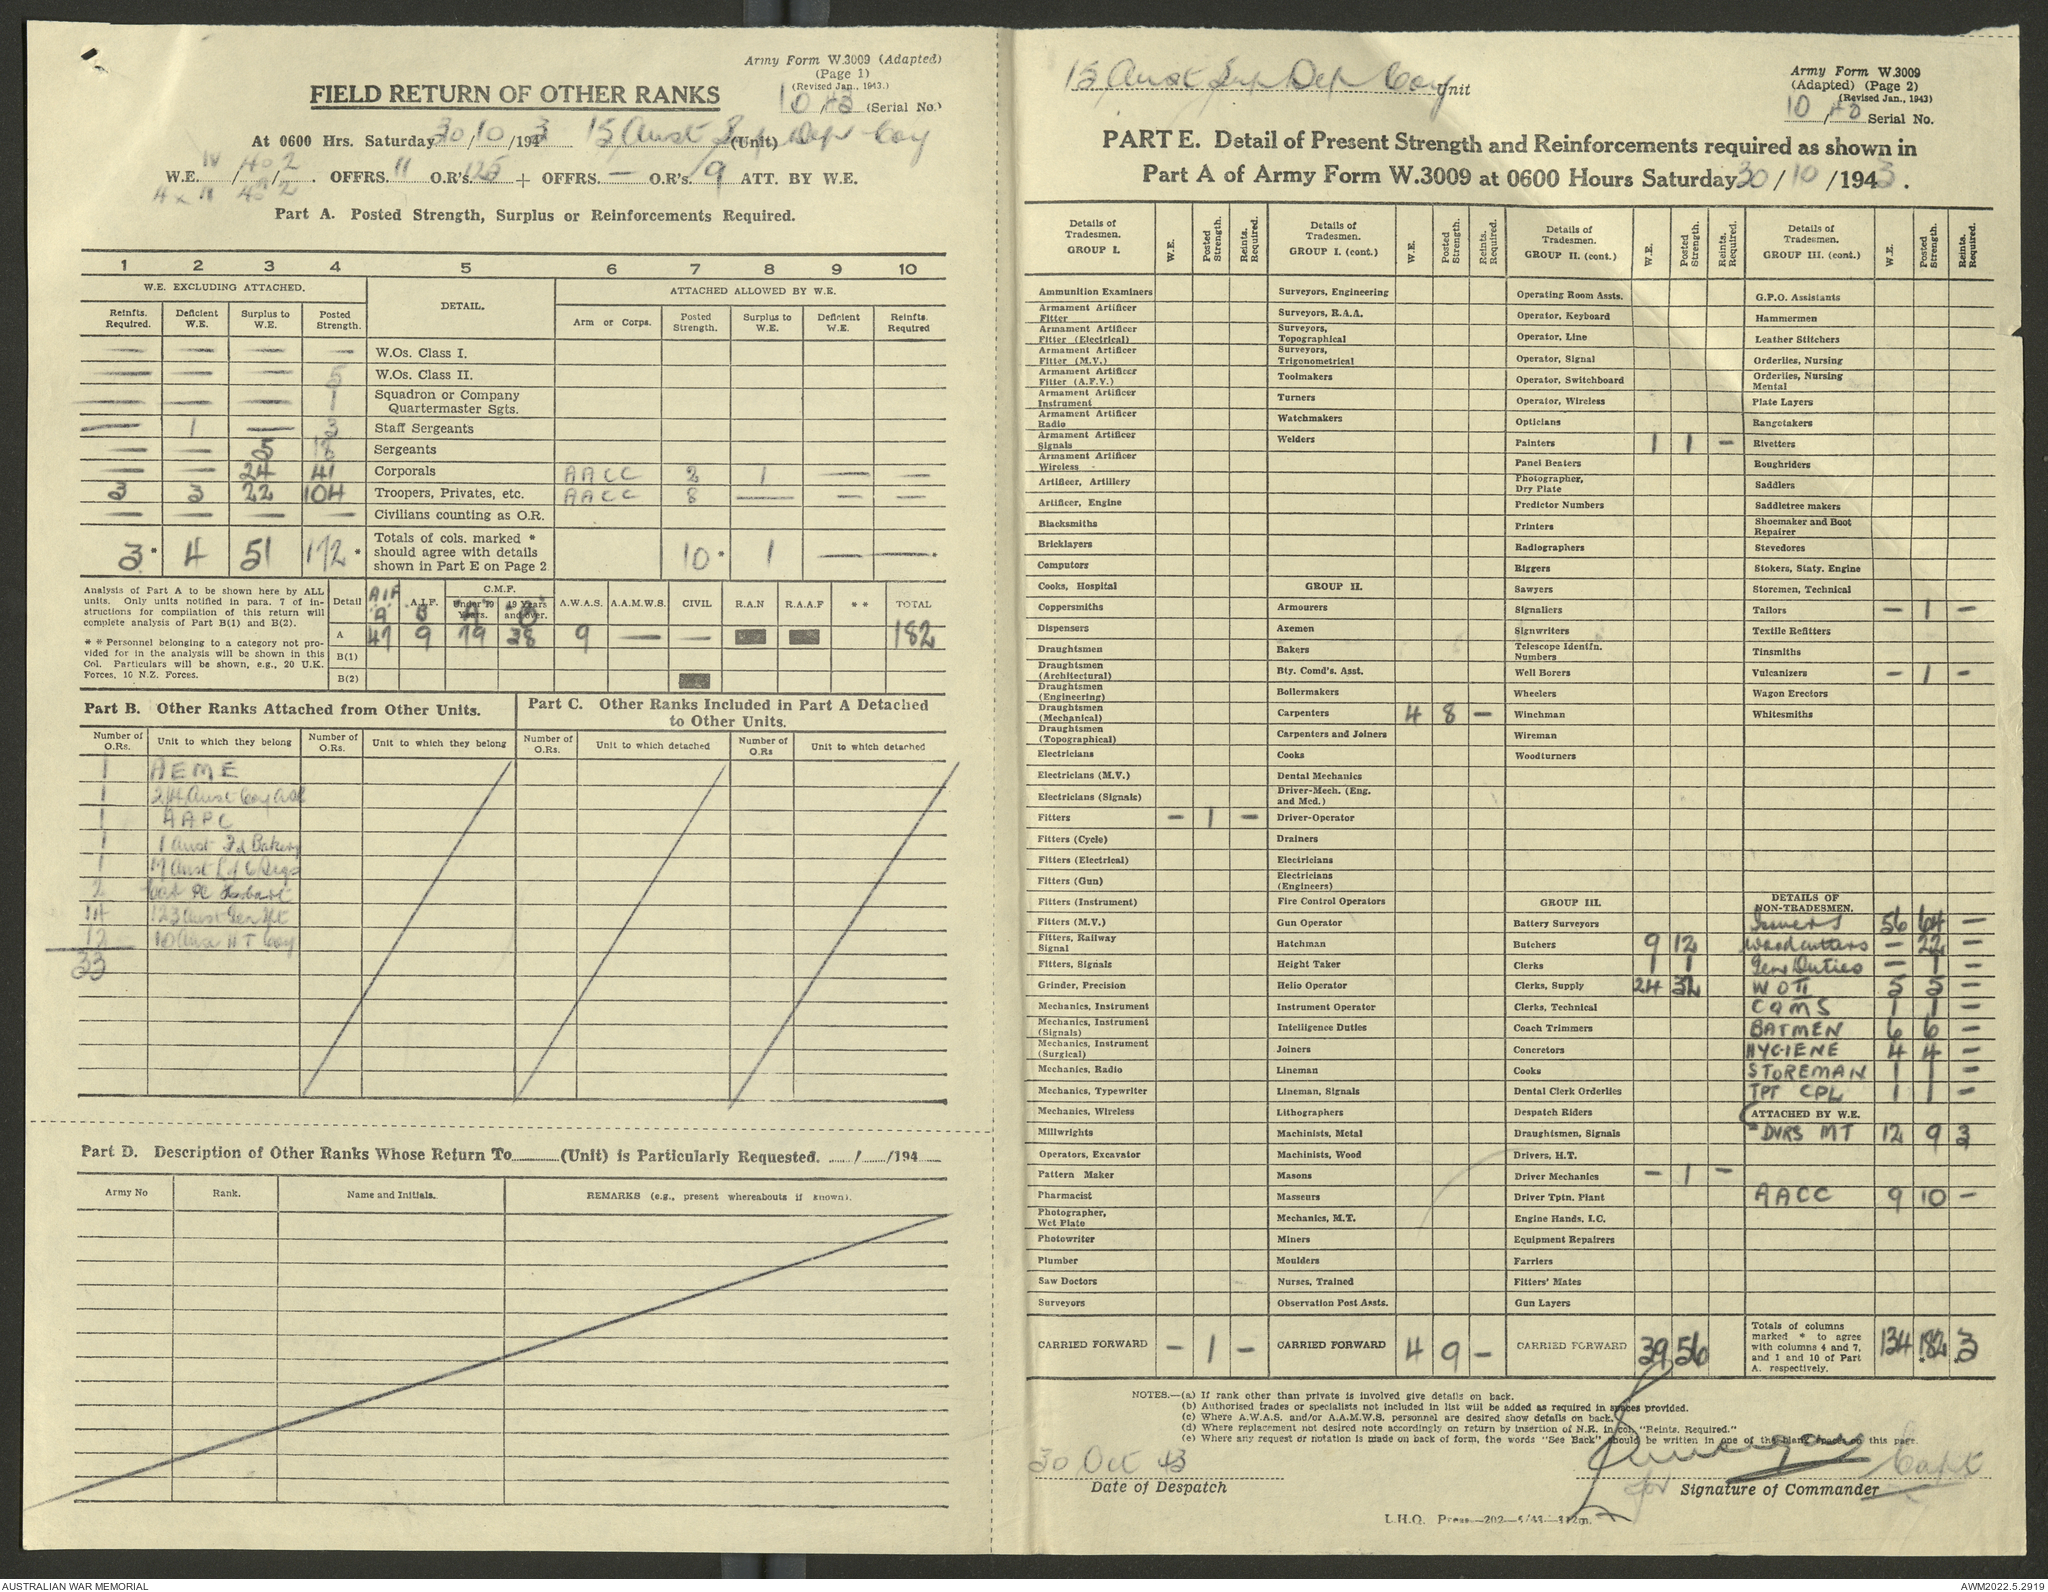 Army Form W.3009 (Adapted)
(Page 1)
(Revised Jan., 1943.)
FIELD RETURN OF OTHER RANKS
10/43 (Serial No.)
At 0600 Hrs. Saturday 30/10/1943 15 Aust Sup Dep Coy (Unit)
IV /40/2
W.E. OFFRS. 11 O.R's. 125 + OFFRS. — O.R's. 9 ATT. BY W.E.
4 x 40 2
Part A. Posted Strength, Surplus or Reinforcements Required.
1 2 3 4 5 6 7 8 9 10
W.E. EXCLUDING ATTACHED. DETAIL. ATTACHED ALLOWED BY W.E.
Reinfts. Required. Deficient W.E. Surplus to W.E. Posted Strength. Arm or Corps. Posted Strength. Surplus to W.E. Deficient W.E. Reinfts. Required
— — — — W.Os. Class I.
— — — 5 W.Os. Class II.
— — — 1 Squadron or Company Quartermaster Sgts.
— 1 — 3 Staff Sergeants
— — 5 18 Sergeants
— — 24 41 Corporals AACC 2 1 — —
3 3 22 104 Troopers, Privates, etc. AACC 8 — — —
— — — — Civilians counting as O.R.
3* 4 51 172* Totals of cols. marked * should agree with details shown in Part E on Page 2 10* 1 — —*
Analysis of Part A to be shown here by ALL units. Only units notified in para. 7 of instructions for compilation of this return will complete analysis of Part B(1) and B(2).
* * Personnel belonging to a category not provided for in the analysis will be shown in this Col. Particulars will be shown, e.g., 20 U.K. Forces, 10 N.Z. Forces.
Detail AIF "A" A.I.F. "B" C.M.F. Under 19 Years. "A" 19 Years and over. "B" A.W.A.S. A.A.M.W.S. CIVIL R.A.N R.A.A.F * * TOTAL
A 47 9 79 38 9 — — 182
B(1)
B(2)
Part B. Other Ranks Attached from Other Units.
Part C. Other Ranks Included in Part A Detached to Other Units.
Number of O.Rs. Unit to which they belong Number of O.Rs. Unit to which they belong Number of O.Rs. Unit to which detached Number of O.Rs Unit to which detached
1 AEME
1 Aust Coy
1 AAPC
1 1 Aust Fd Bakery
1 17 Aust L of C Sigs
2
14 123 Aust Gen Tpt
12 10 Aust HT Coy
33
Part D. Description of Other Ranks Whose Return To (Unit) is Particularly Requested. / /194
Army No Rank. Name and Initials. REMARKS (e.g., present whereabouts if known).
15 Aust Sup Dep Coy Unit
Army Form W.3009
(Adapted) (Page 2)
(Revised Jan., 1943)
10/43 Serial No.
PART E. Detail of Present Strength and Reinforcements required as shown in
Part A of Army Form W.3009 at 0600 Hours Saturday 30/10/1943.
Details of Tradesmen. GROUP I. W.E. Posted Strength. Reints. Required.
Ammunition Examiners
Armament Artificer Fitter
Armament Artificer Fitter (Electrical)
Armament Artificer Fitter (M.V.)
Armament Artificer Fitter (A.F.V.)
Armament Artificer Instrument
Armament Artificer Radio
Armament Artificer Signals
Armament Artificer Wireless
Artificer, Artillery
Artificer, Engine
Blacksmiths
Bricklayers
Computors
Cooks, Hospital
Coppersmiths
Dispensers
Draughtsmen
Draughtsmen (Architectural)
Draughtsmen (Engineering)
Draughtsmen (Mechanical)
Draughtsmen (Topographical)
Electricians
Electricians (M.V.)
Electricians (Signals)
Fitters — 1 —
Fitters (Cycle)
Fitters (Electrical)
Fitters (Gun)
Fitters (Instrument)
Fitters (M.V.)
Fitters, Railway Signal
Fitters, Signals
Grinder, Precision
Mechanics, Instrument
Mechanics, Instrument (Signals)
Mechanics, Instrument (Surgical)
Mechanics, Radio
Mechanics, Typewriter
Mechanics, Wireless
Millwrights
Operators, Excavator
Pattern Maker
Pharmacist
Photographer, Wet Plate
Photowriter
Plumber
Saw Doctors
Surveyors
CARRIED FORWARD — 1 —
Details of Tradesmen. GROUP I. (cont.) W.E. Posted Strength. Reints. Required.
Surveyors, Engineering
Surveyors, R.A.A.
Surveyors, Topographical
Surveyors, Trigonometrical
Toolmakers
Turners
Watchmakers
Welders
GROUP II.
Armourers
Axemen
Bakers
Bty. Comd's. Asst.
Boilermakers
Carpenters 4 8 —
Carpenters and Joiners
Cooks
Dental Mechanics
Driver-Mech. (Eng. and Med.)
Driver-Operator
Drainers
Electricians
Electricians (Engineers)
Fire Control Operators
Gun Operator
Hatchman
Height Taker
Helio Operator
Instrument Operator
Intelligence Duties
Joiners
Lineman
Lineman, Signals
Lithographers
Machinists, Metal
Machinists, Wood
Masons
Masseurs
Mechanics, M.T.
Miners
Moulders
Nurses, Trained
Observation Post Assts.
CARRIED FORWARD 4 9 —
Details of Tradesmen. GROUP II. (cont.) W.E. Posted Strength. Reints. Required.
Operating Room Assts.
Operator, Keyboard
Operator, Line
Operator, Signal
Operator, Switchboard
Operator, Wireless
Opticians
Painters 1 1 —
Panel Beaters
Photographer, Dry Plate
Predictor Numbers
Printers
Radiographers
Riggers
Sawyers
Signallers
Signwriters
Telescope Identfn. Numbers
Well Borers
Wheelers
Winchman
Wireman
Woodturners
GROUP III.
Battery Surveyors
Butchers 9 12
Clerks 1 1
Clerks, Supply 24 32
Clerks, Technical
Coach Trimmers
Concretors
Cooks
Dental Clerk Orderlies
Despatch Riders
Draughtsmen, Signals
Drivers, H.T.
Driver Mechanics — 1 —
Driver Tptn. Plant
Engine Hands, I.C.
Equipment Repairers
Farriers
Fitters' Mates
Gun Layers
CARRIED FORWARD 39 56
Details of Tradesmen. GROUP III. (cont.) W.E. Posted Strength. Reints. Required.
G.P.O. Assistants
Hammermen
Leather Stitchers
Orderlies, Nursing
Orderlies, Nursing Mental
Plate Layers
Rangetakers
Rivetters
Roughriders
Saddlers
Saddletree makers
Shoemaker and Boot Repairer
Stevedores
Stokers, Staty. Engine
Storemen, Technical
Tailors — 1 —
Textile Refitters
Tinsmiths
Vulcanizers — 1 —
Wagon Erectors
Whitesmiths
DETAILS OF NON-TRADESMEN.
Issuers 56 64 —
Woodcutters — 22 —
Gen Duties — 1 —
WOII 5 5 —
CQMS 1 1 —
BATMEN 6 6 —
HYGIENE 4 4 —
STOREMAN 1 1 —
TPT CPL 1 1 —
ATTACHED BY W.E.
DVRS MT 12 9 3
AACC 9 10 —
Totals of columns marked * to agree with columns 4 and 7, and 1 and 10 of Part A. respectively. 134 182 3
NOTES.—(a) If rank other than private is involved give details on back.
(b) Authorised trades or specialists not included in list will be added as required in spaces provided.
(c) Where A.W.A.S. and/or A.A.M.W.S. personnel are desired show details on back.
(d) Where replacement not desired note accordingly on return by insertion of N.R. in col. "Reints. Required."
(e) Where any request or notation is made on back of form, the words "See Back" should be written in one of the blank spaces on this page.
30 Oct 43
Date of Despatch
Capt
for Signature of Commander
L.H.Q. Press
AUSTRALIAN WAR MEMORIAL
AWM2022.5.2919